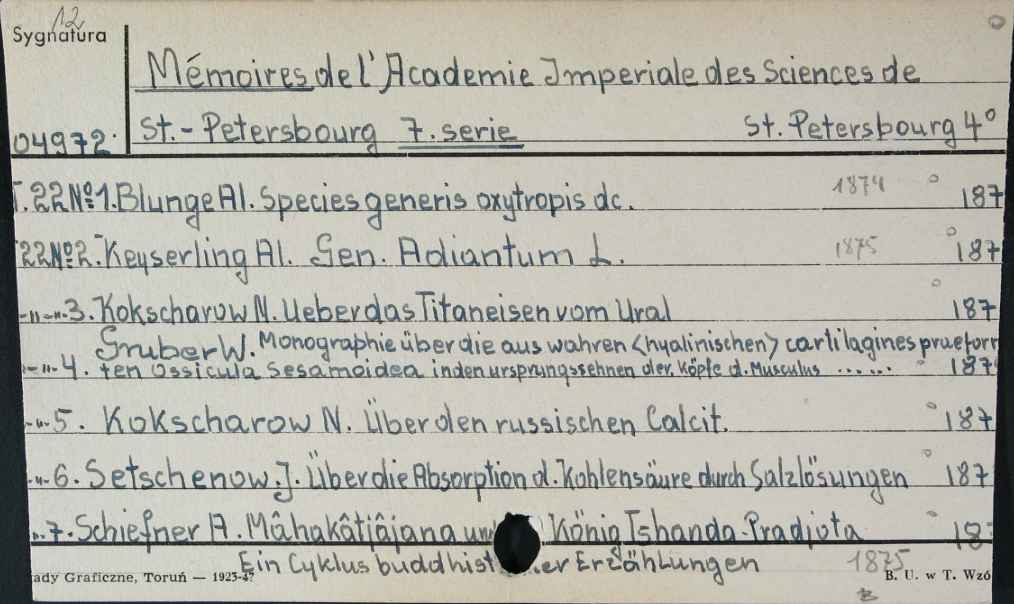 12
Sygnatura
Mémoires de l'Academie Imperiale des Sciences de
04972. St.-Petersbourg 7. serie St. Petersbourg 4°
T. 22 Nº 1. Blunge Al. Species generis oxytropis dc. 1874 187
22 Nº 2. Keyserling Al. Gen. Adiantum L. 1875 187
-„-„- 3. Kokscharow N. Ueber das Titaneisen vom Ural 187
Gruber W. Monographie über die aus wahren <hyalinischen> cartilagines praeform
-„- 4. ten Ossicula Sesamoidea in den ursprungssehnen der Köpfe d. Musculus ...... 187
-„- 5. Kokscharow N. Über den russischen Calcit. 187
-„- 6. Setschenow. J. Über die Absorption d. Kohlensäure durch Salzlösungen 187
„- 7. Schiefner A. Mâhakâtjâjana König Tshanda-Pradjota 18
Ein Cyklus Erzählungen 1875
ady Graficzne, Toruń — 1923-47 B. U. w T. Wzó